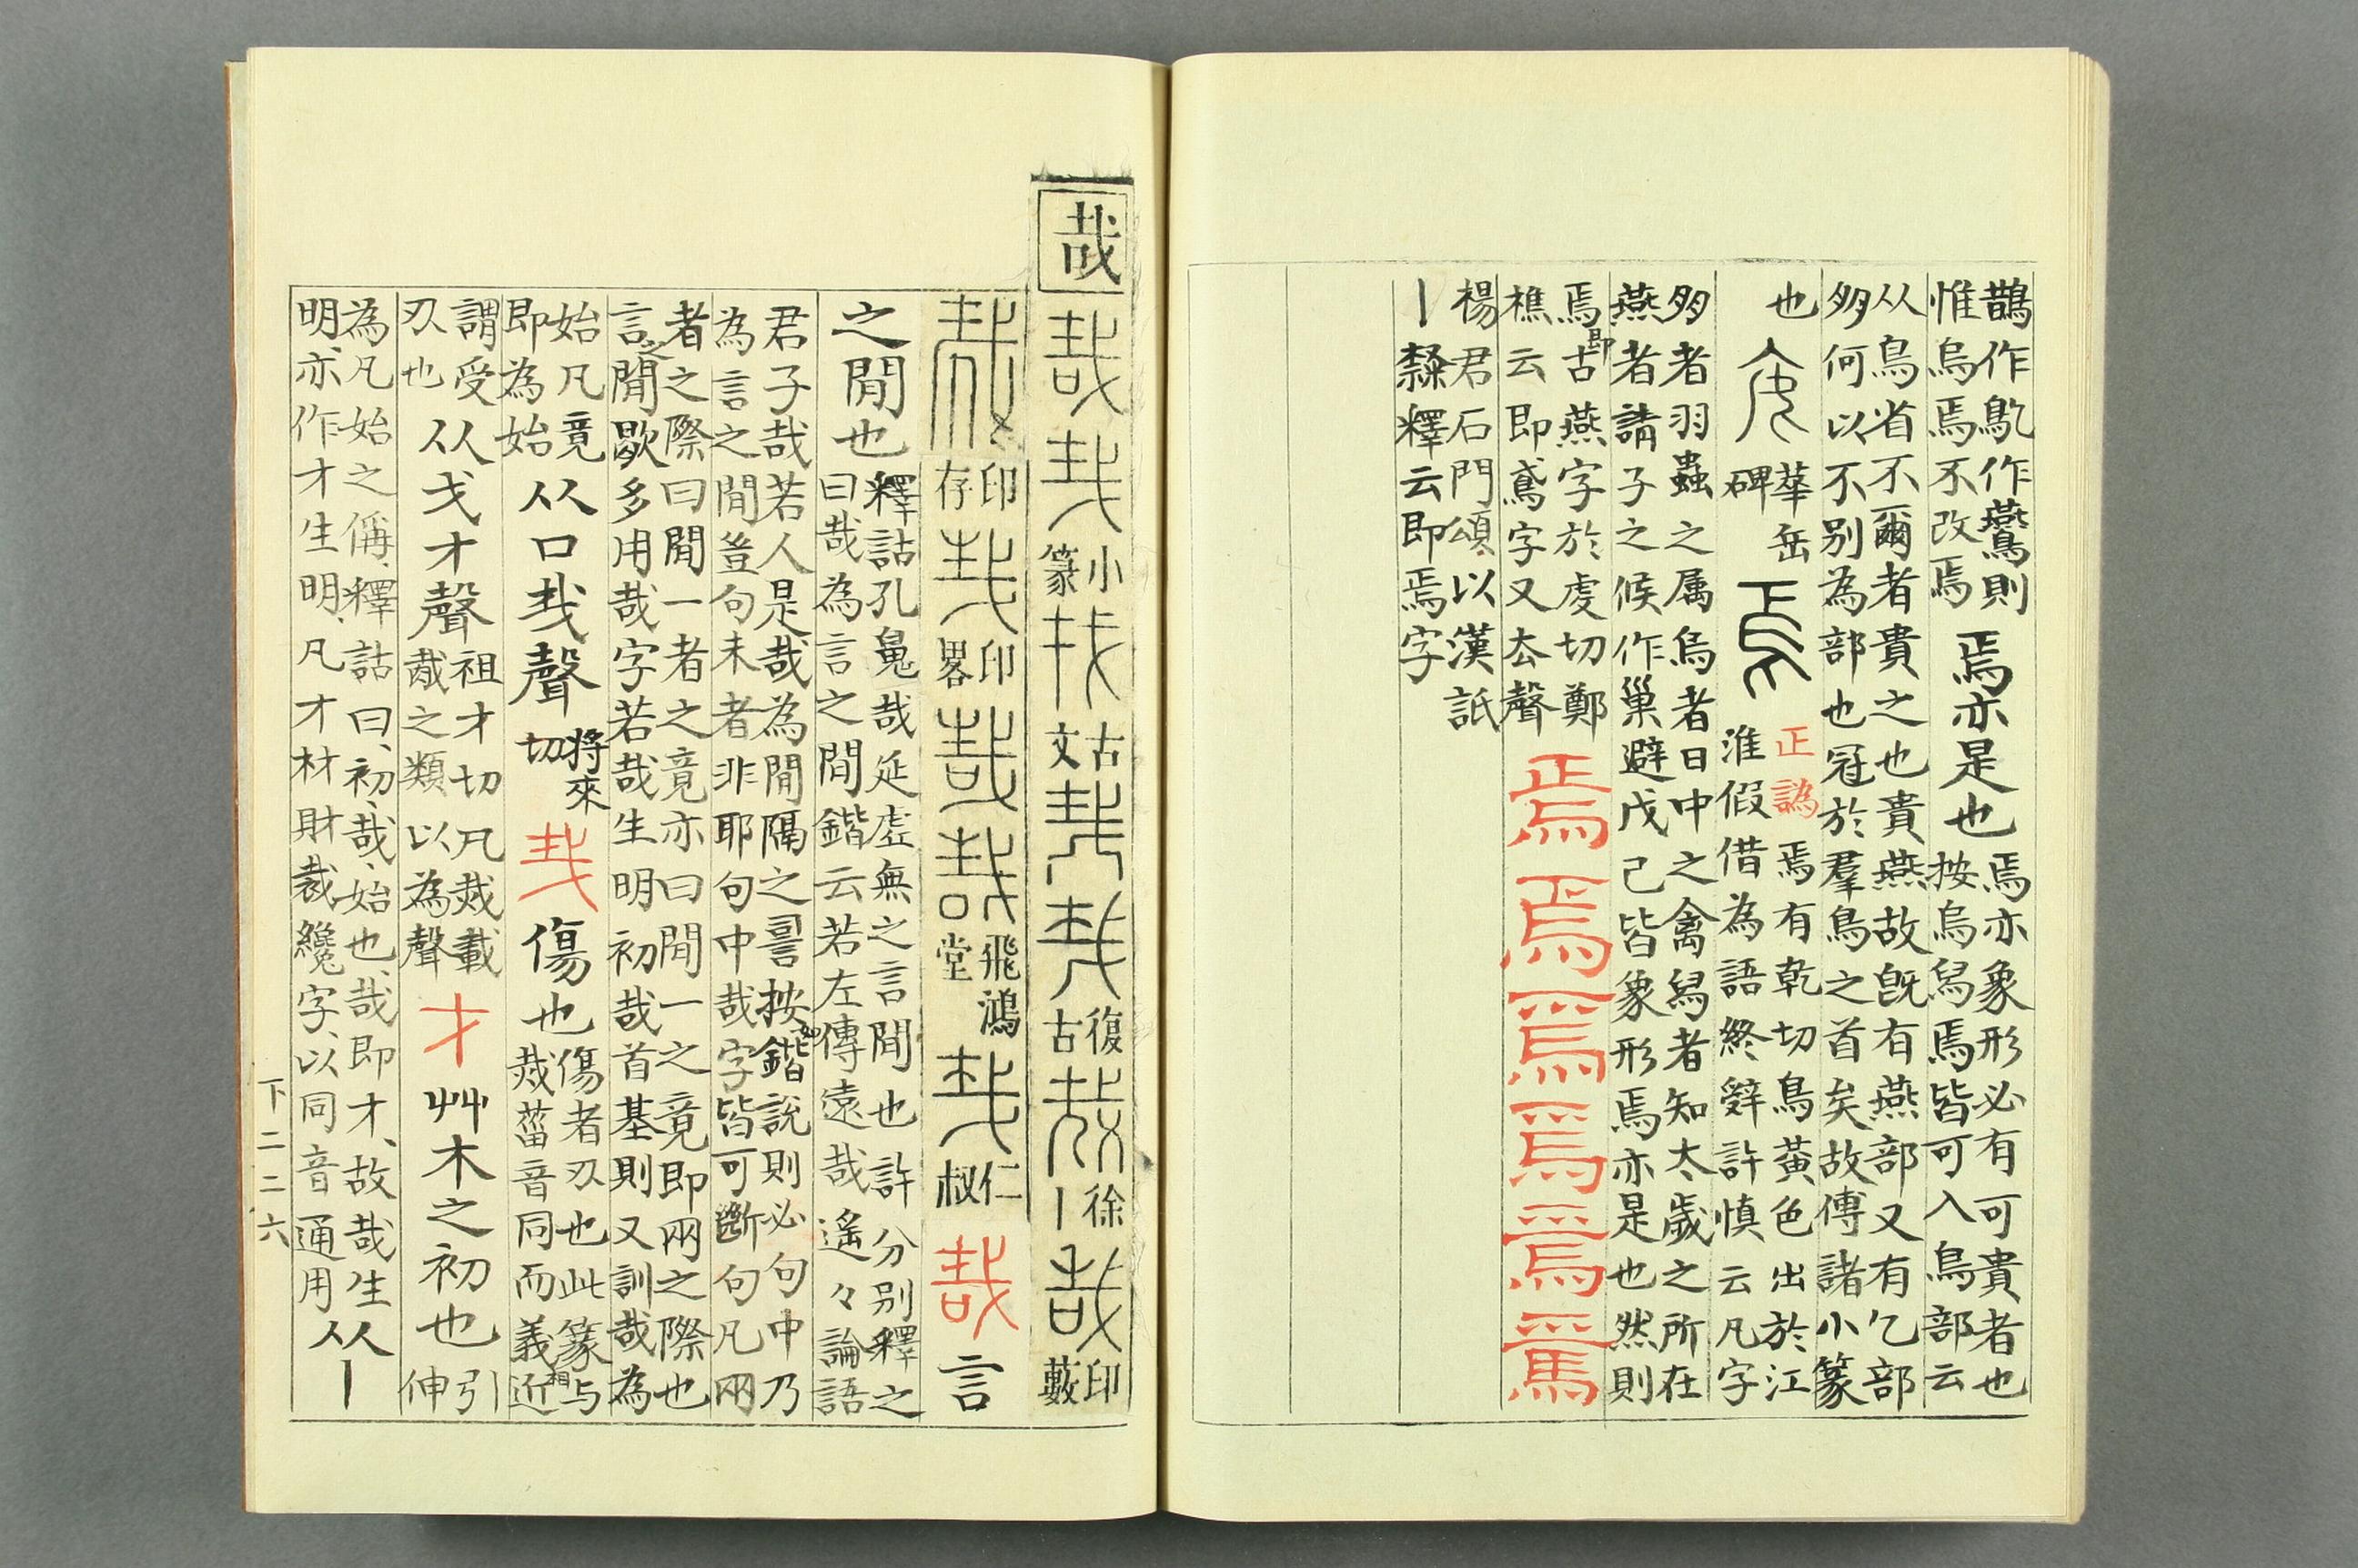 鵲作䧿作鷰則
惟烏焉不改焉
焉亦是也
焉亦象形必有可貴者也
按烏舄焉皆可入鳥部云
从鳥省不爾者貴之也貴燕故旣有燕部又有乞部
多何以不別為部也冠於羣鳥之首矣故傳諸小篆
也
華岳
碑
焉
正譌
焉有乾切鳥黃色出於江
淮假借為語終辤許慎云凡字
多者羽蟲之属烏者日中之禽舄者知太歲之所在
燕者請子之候作巢避戊己皆象形焉亦是也然則
焉即古燕字於虔切鄭
樵云即鳶字又厺聲
焉焉焉焉焉焉
楊君石門頌以漢詆
丨隸釋云即焉字
哉
哉𢦏
小篆
古文
復古
徐丨
哉
印藪
印存
𢦏
印畧
哉哉
飛鴻堂
𢦏
仁叔
哉
言
之閒也
釋詁孔鬼哉延虛無之言閒也許分別釋之
曰哉為言之間鍇云若左傳遠哉遙々論語
君子哉若人是哉為閒隔之詈按如鍇說則必句中乃
為言之閒豈句末者非耶句中哉字皆可斷句凡兩
者之際曰閒一者之竟亦曰閒一之竟即兩之際也
言之閒歇多用哉字若哉生明初哉首基則又訓哉為
始凡竟
即為始
从口𢦏聲
將來切
𢦏
傷也
傷者刄也此篆与
烖菑音同而義相近
謂受
刄也
从戈才聲
祖才切凡烖載
胾之類以為聲
才
艸木之初也
引
伸
為凡始之偁、釋詁曰、初、哉、始也、哉即才、故哉生
明、亦作才生明、凡才材財裁纔字、以同音通用
从丨
下二二六